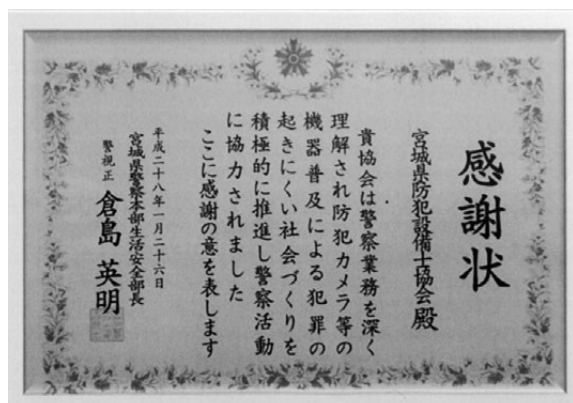 感謝状
宮城県防犯設備士協会殿
貴協会は警察業務を深く
理解され防犯カメラ等の
機器普及による犯罪の
起きにくい社会づくりを
積極的に推進し警察活動
に協力されました
ここに感謝の意を表します
平成二十八年一月二十六日
宮城県警察本部生活安全部長
警視正 倉島英明